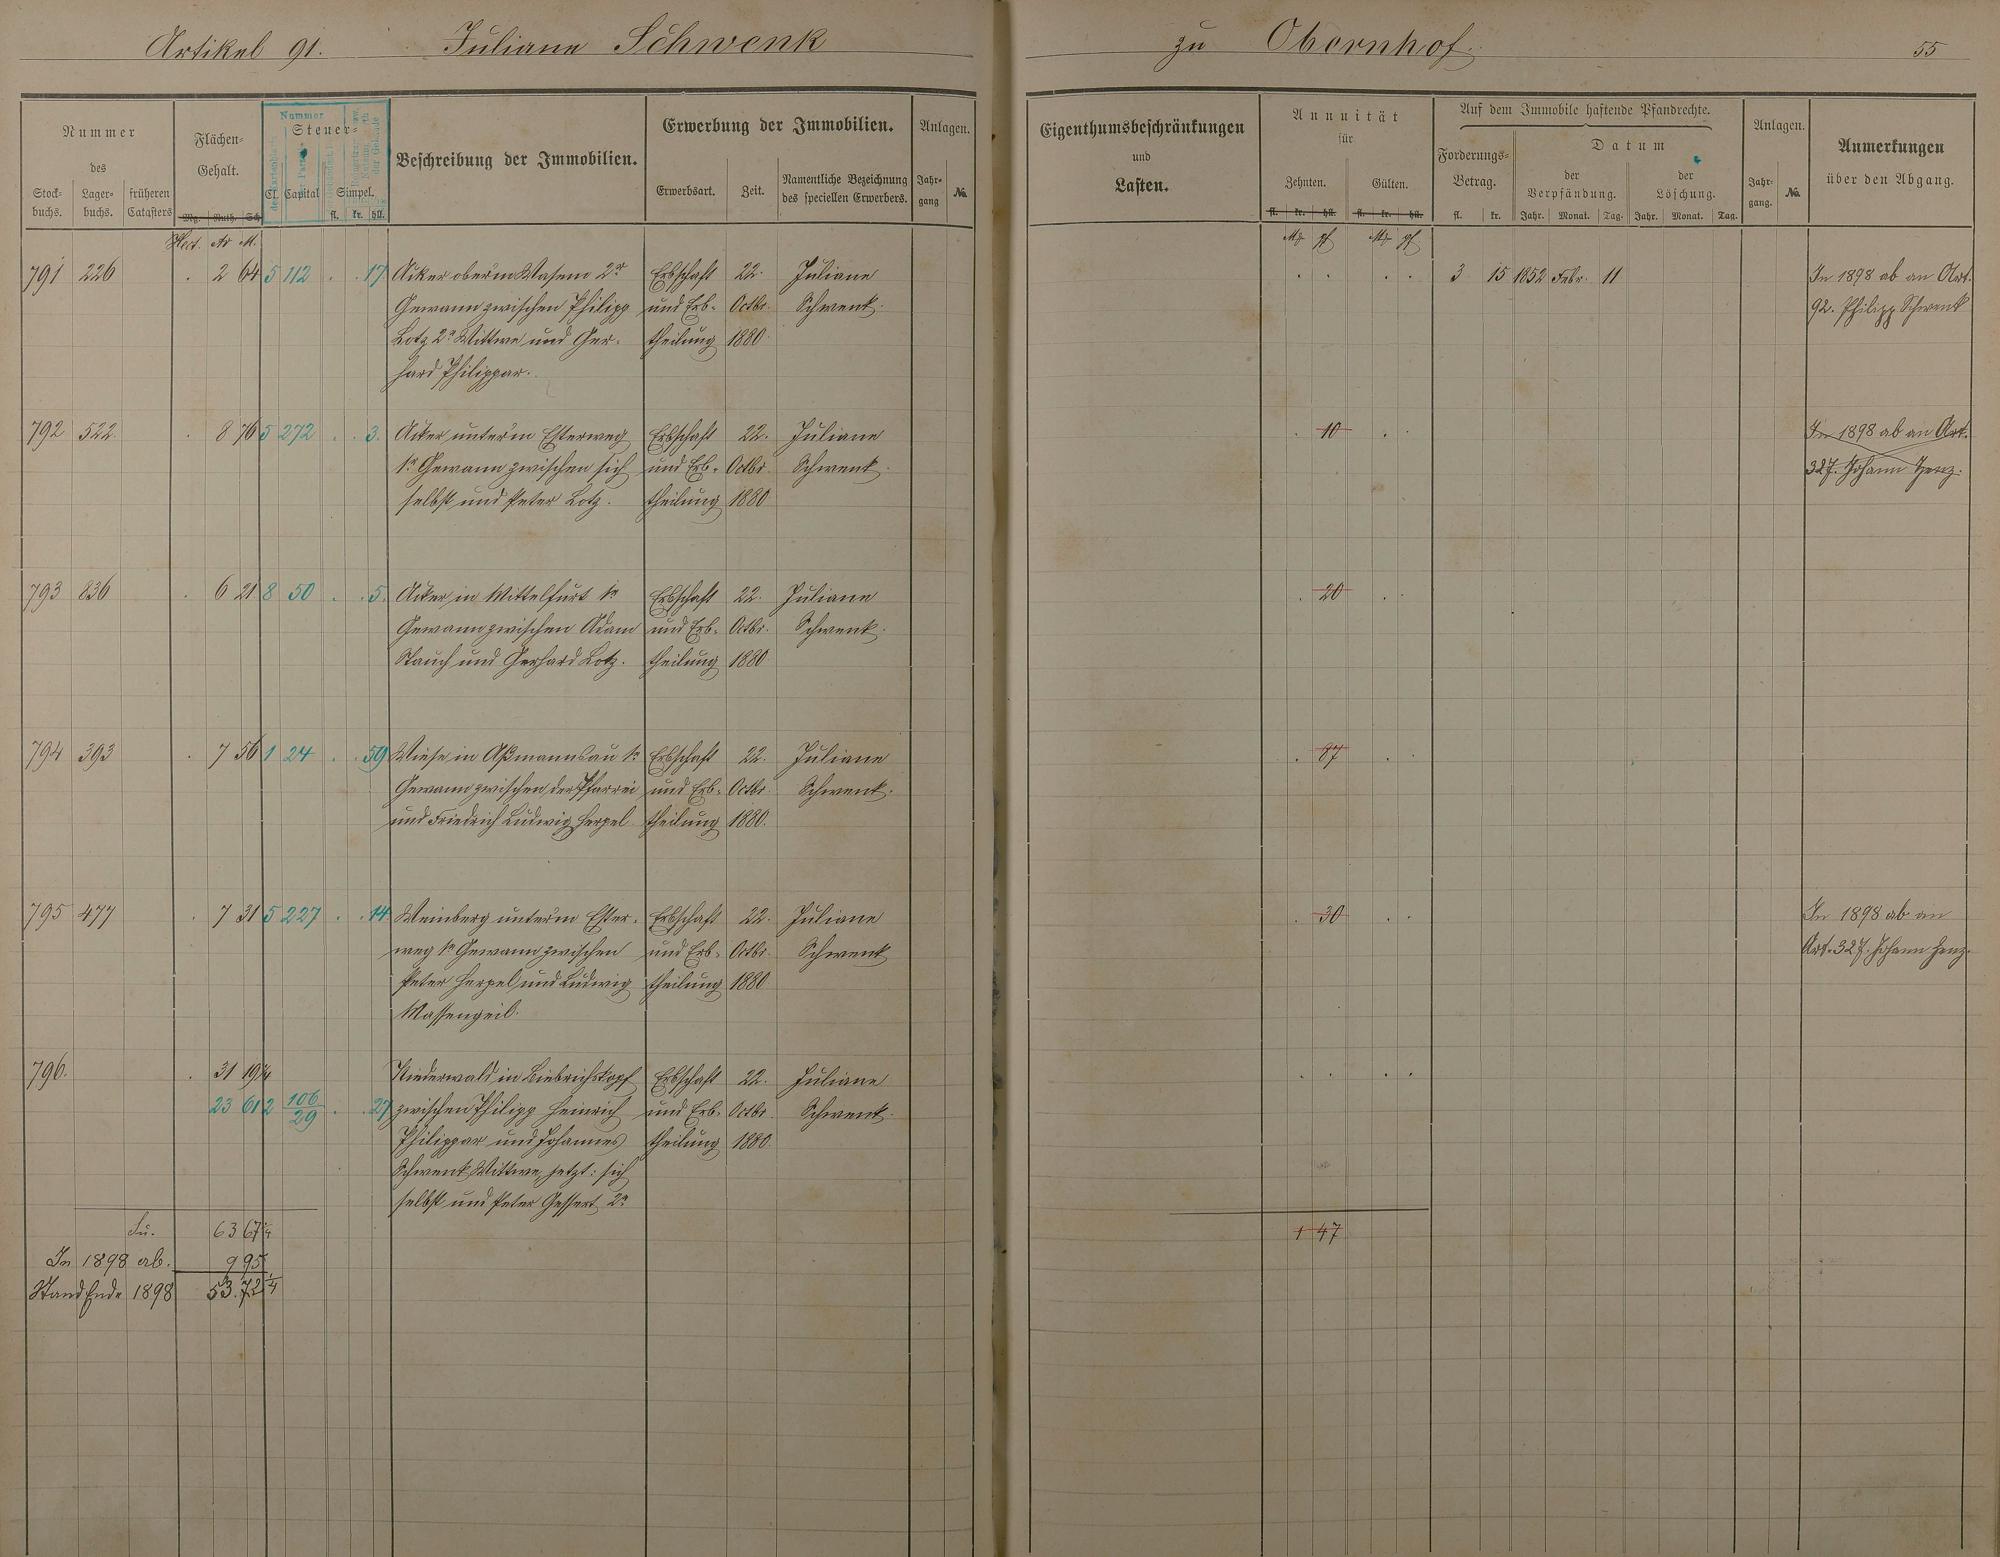 Artikel 91. Juliane Schwenk zu Obernhof. 55
Nummer des
Stock-buchs. Lager-buchs. früheren Catasters
Flächen-Gehalt.
Mg. Ruth. Sch.
Hect. Ar M.
Nummer
Steuer-
Cl. Capital Simpel.
fl. kr. hll.
Beschreibung der Immobilien.
Erwerbung der Immobilien.
Erwerbsart. Zeit. Namentliche Bezeichnung des speciellen Erwerbers.
Anlagen.
Jahr-gang No.
Eigenthumsbeschränkungen
und
Lasten.
Annuität
für
Zehnten. Gülten.
fl. kr. hll. fl. kr. hll.
M. pf M. pf
Auf dem Immobile haftende Pfandrechte.
Forderungs-Betrag.
fl. kr.
Datum
der Verpfändung. der Löschung.
Jahr. Monat. Tag. Jahr. Monat. Tag.
Anlagen.
Jahr-gang. No.
Anmerkungen
über den Abgang.
791 226 . 2 64 5 112 . . 17 Acker ober'm Wasem 2r Erbschaft 22. Juliane . . . . 3 15 1852 Febr. 11 In 1898 ab an Art.
Gewann zwischen Philipp und Erb- Octbr. Schwenk. 92. Philipp Schwenk
Lotz 2r Wittwe und Ger- theilung 1880
hard Philippar.
792 522 . 8 76 5 272 . . 3. Acker unter'm Esterweg Erbschaft 22. Juliane . 10 . . In 1898 ab an Art.
1r Gewann zwischen sich und Erb- Octbr. Schwenk. 327. Johann Henz.
selbst und Peter Lotz. theilung 1880
793 836 . 6 21 8 50 . . 5. Acker in Mittelfurt 1r Erbschaft 22. Juliane . 20 . .
Gewann zwischen Adam und Erb- Octbr. Schwenk.
Stauch und Gerhard Lotz. theilung 1880
794 393 . 7 56 1 24 . . 59 Wiese in Aßmannsau 1r Erbschaft 22. Juliane . 87 . .
Gewann zwischen der Pfarrei und Erb- Octbr. Schwenk.
und Friedrich Ludwig Herpel theilung 1880.
795 477 . 7 31 5 227 . . 14 Weinberg unter'm Ester- Erbschaft 22. Juliane . 30 . . In 1898 ab an
weg 1r Gewann zwischen und Erb- Octbr. Schwenk Art. 327. Johann Henz.
Peter Herpel und Ludwig theilung 1880
Massengeil.
796. . 31 19 1/4 Niederwald in Biebrichskopf Erbschaft 22. Juliane . . . .
23 61 2 106/29 . . 27 zwischen Philipp Heinrich und Erb- Octbr. Schwenk.
Philippar und Johannes theilung 1880.
Schwenk Wittwe, jetzt: sich
selbst und Peter Gessert 2r
Su. 63 67 1/4 1 47
In 1898 ab. 9 95
Stand Ende 1898 53. 72 1/4